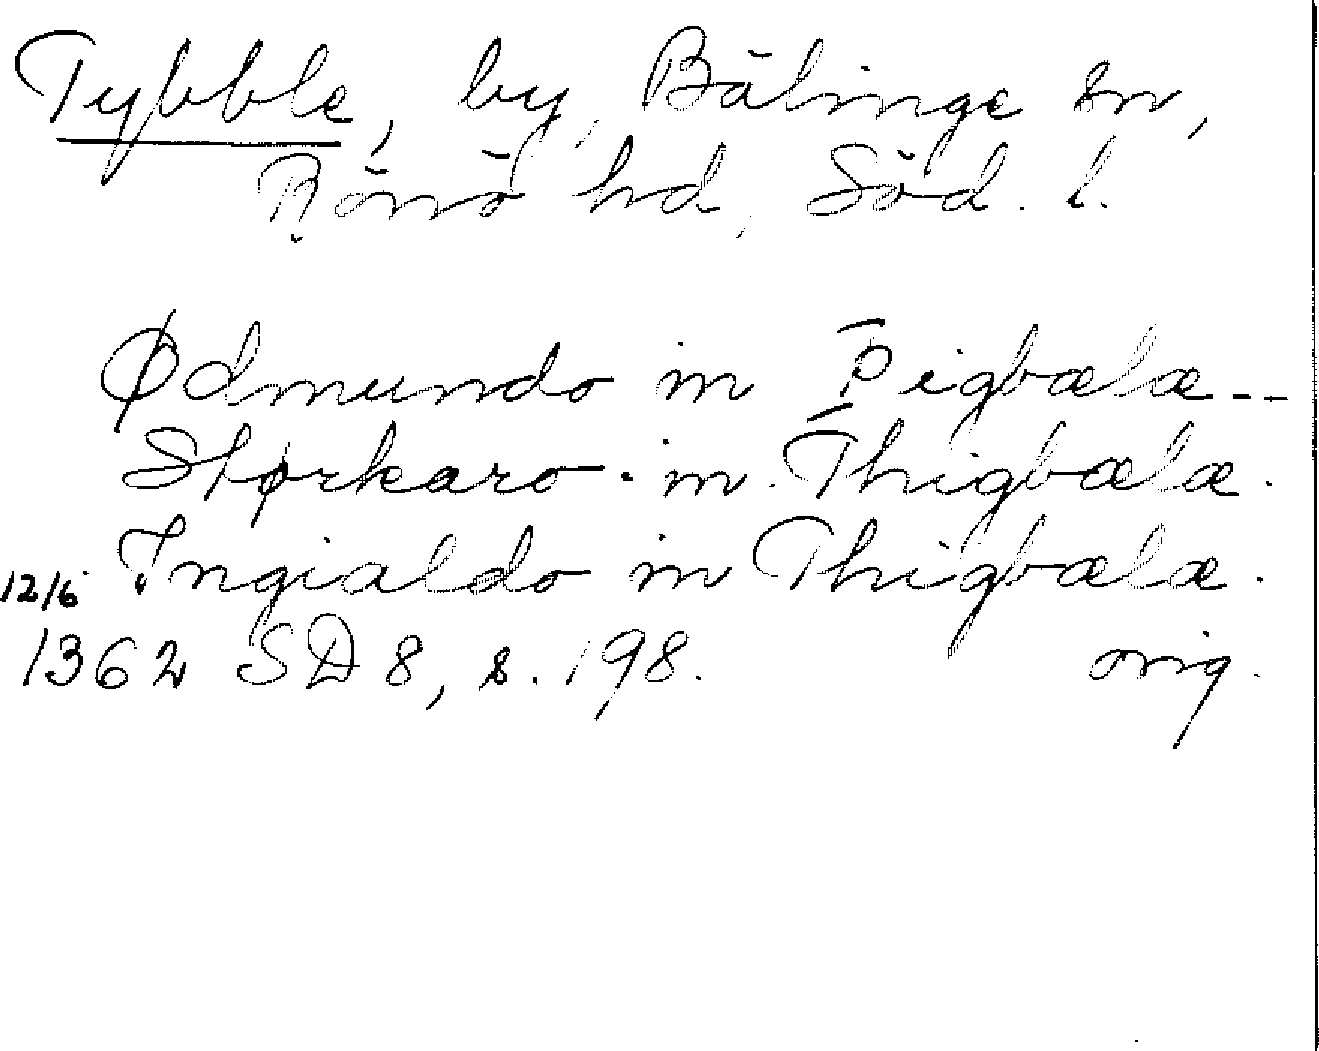 Tybble, by, Bälinge sn,
Rönö hd, Söd. l.
Ødmundo in Þigbælæ --
Størkaro . in Thigbælæ.
12/6 Ingialdo in Thigbælæ.
1362 SD 8, s. 198. orig.